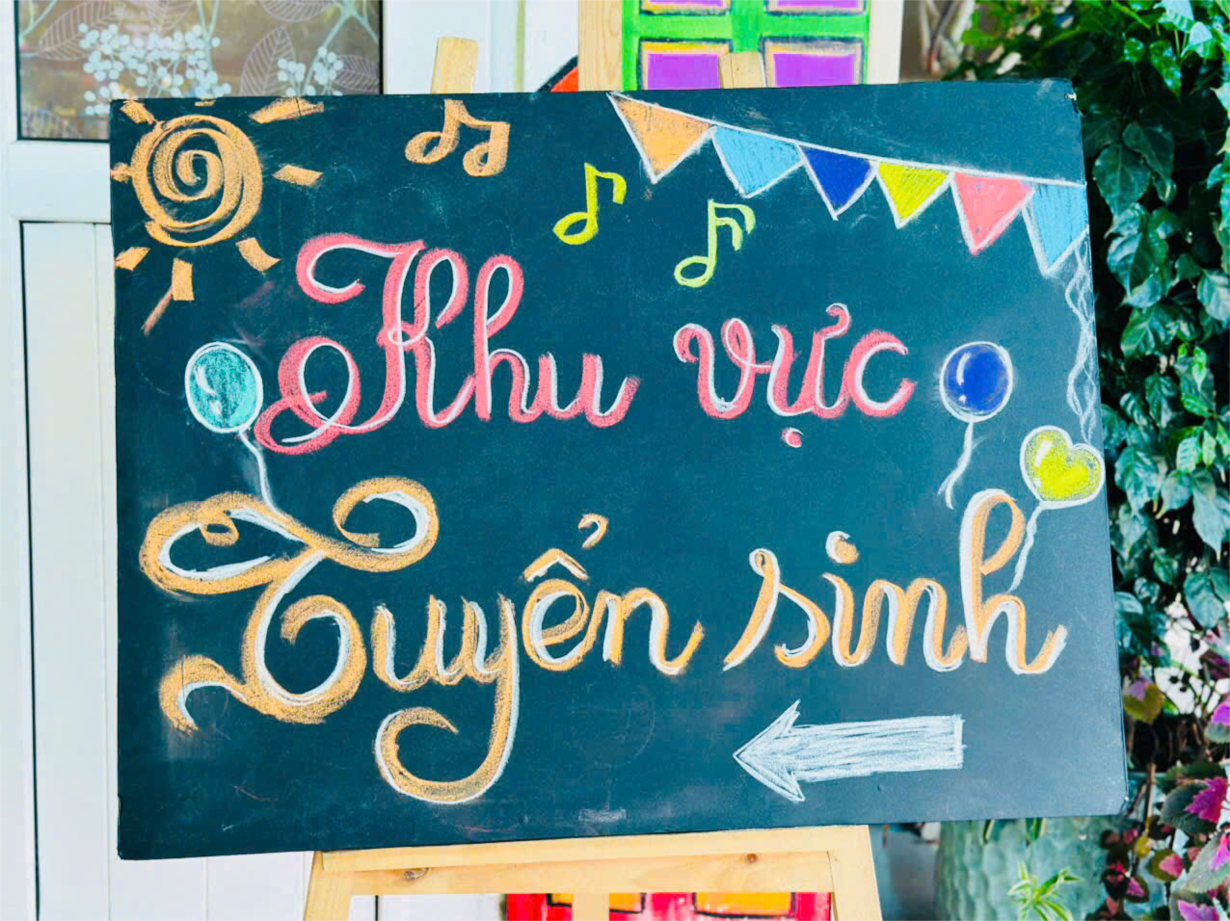 Khu vực
Tuyển sinh